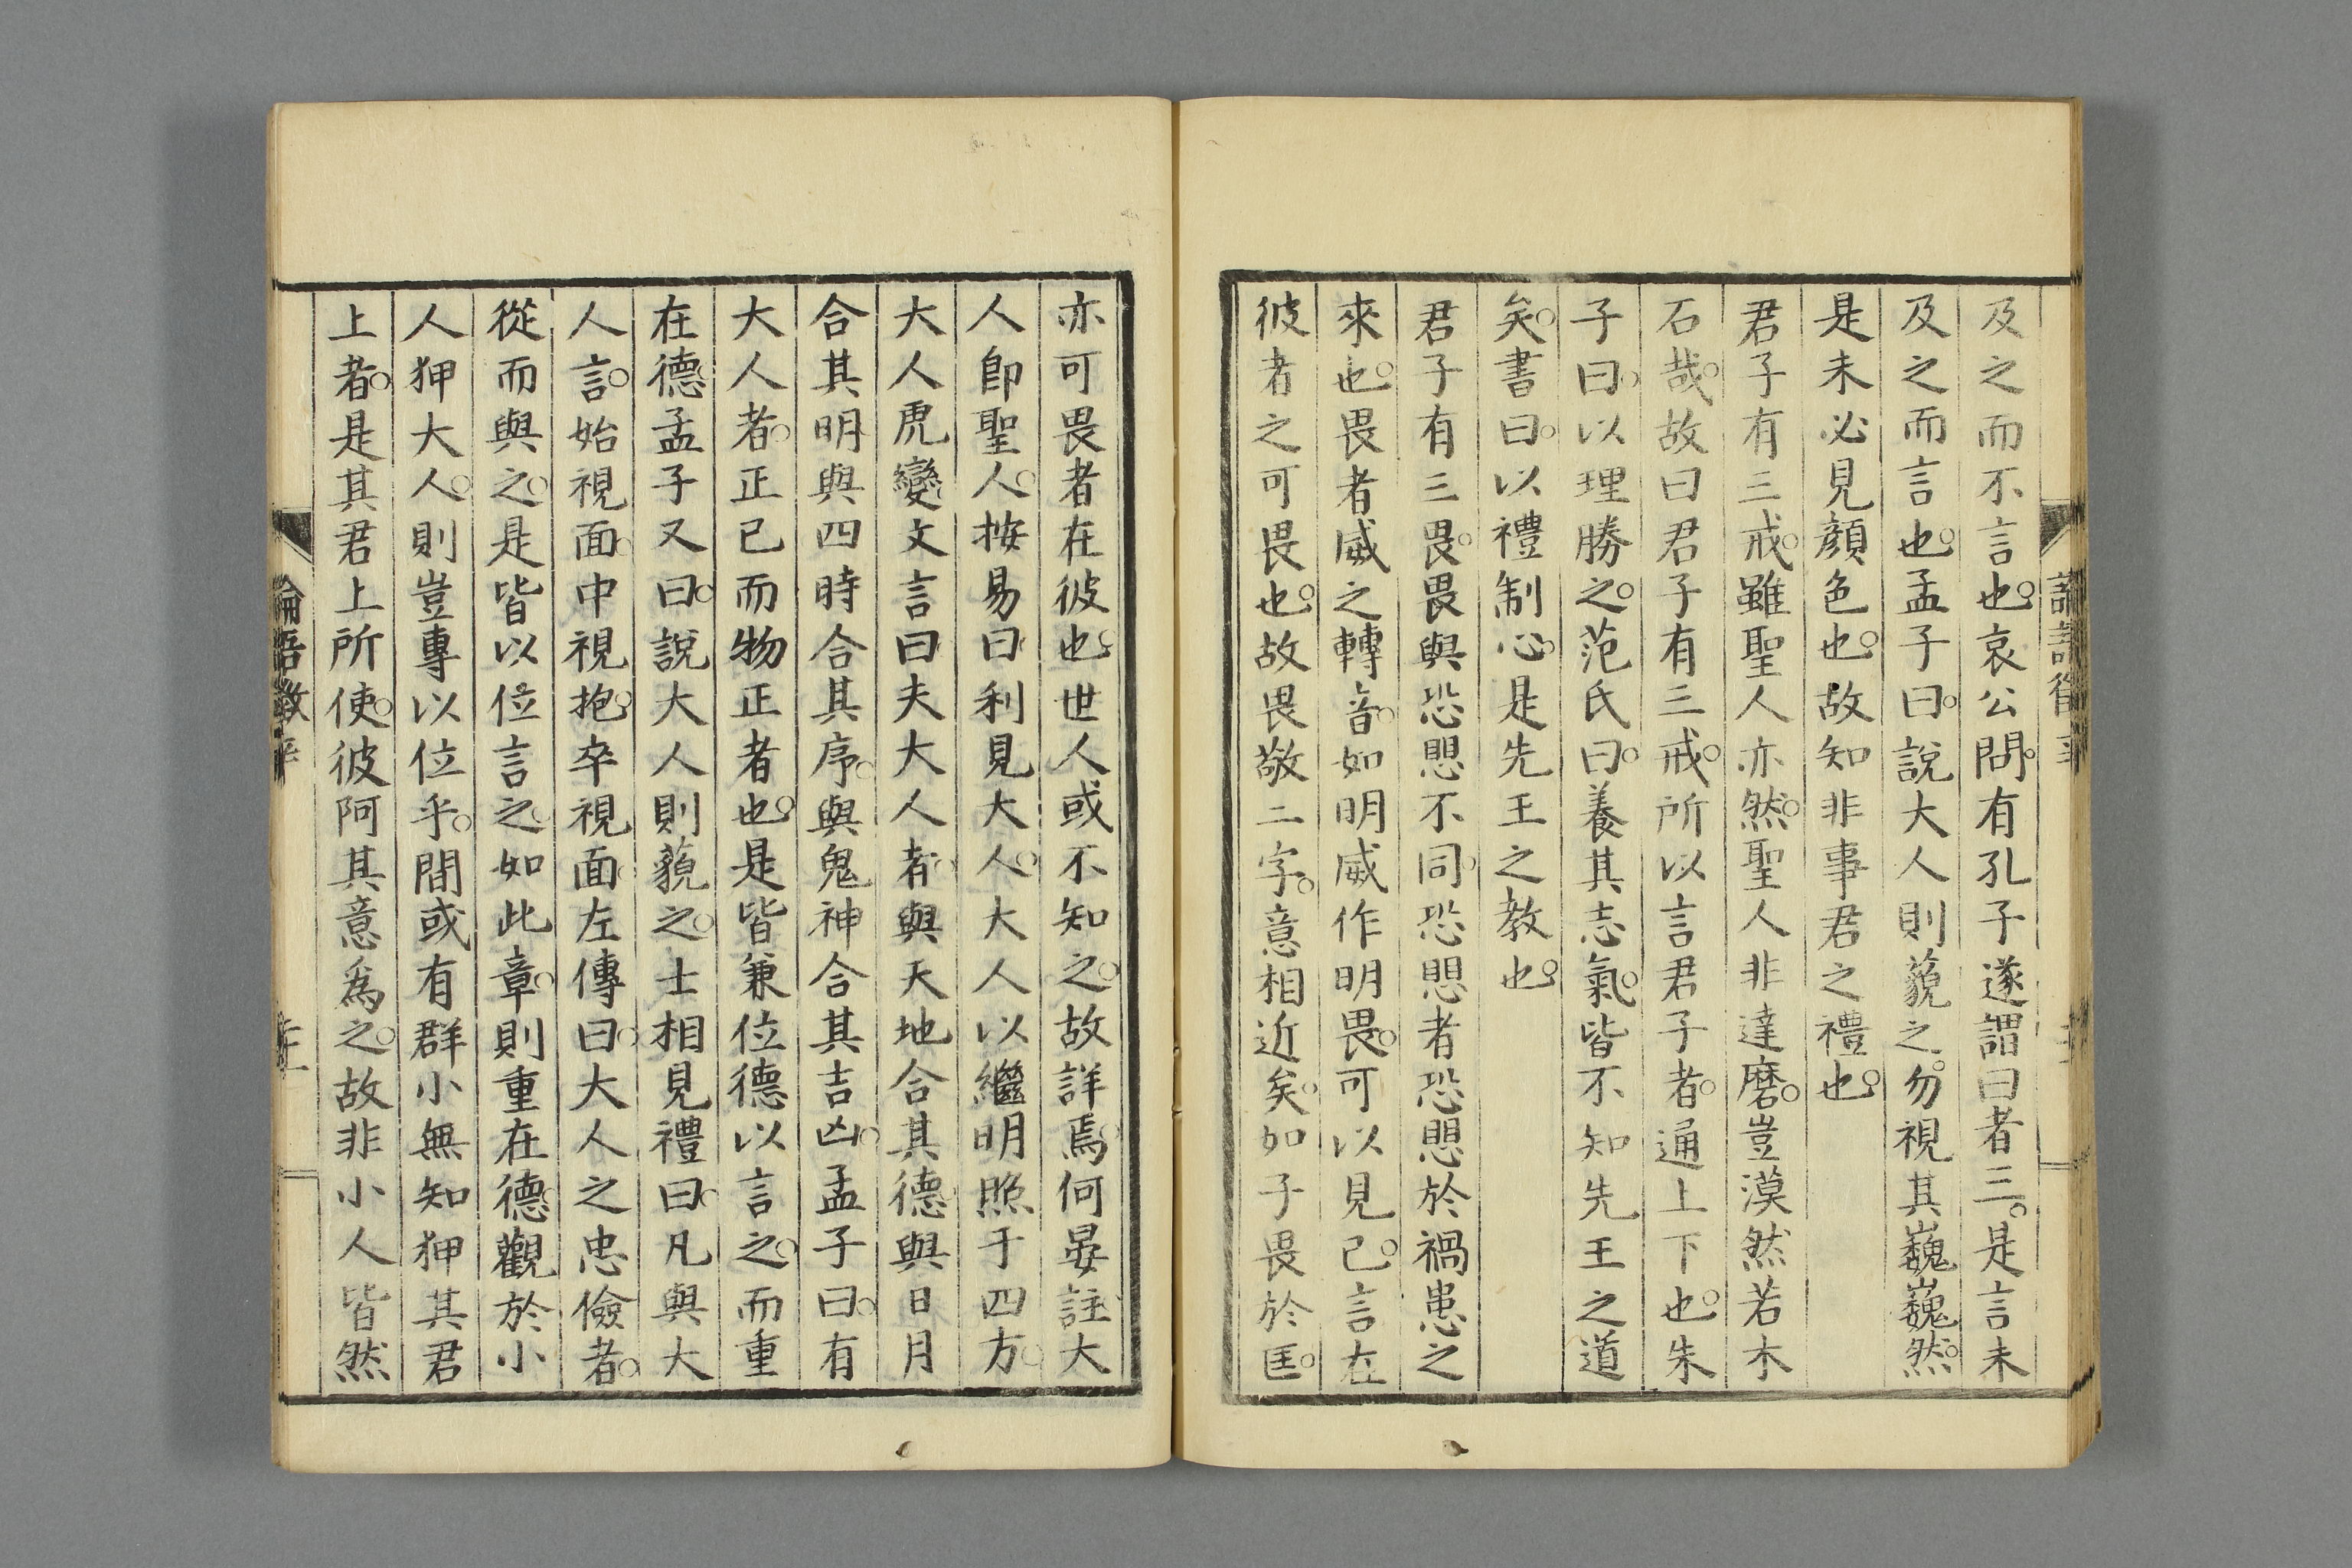 及之而不言也。哀公問。有孔子遂謂曰者三。是言未
及之而言也。孟子曰。說大人則藐之。勿視其巍巍然。
是未必見顏色也。故知非事君之禮也。
君子有三戒。雖聖人亦然。聖人非達磨。豈漠然若木
石哉。故曰君子有三戒。所以言君子者。通上下也。朱
子曰。以理勝之。范氏曰。養其志氣。皆不知先王之道
矣。書曰。以禮制心。是先王之教也。
君子有三畏。畏與恐懼不同。恐懼者恐懼於禍患之
來也。畏者威之轉音。如明威作明畏。可以見已。言在
彼者之可畏也。故畏敬二字。意相近矣。如子畏於匡。
亦可畏者在彼也。世人或不知之。故詳焉。何晏註大
人卽聖人。按易曰。利見大人。大人以繼明照于四方。
大人虎變。文言曰。夫大人者。與天地合其德。與日月
合其明。與四時合其序。與鬼神合其吉凶。孟子曰。有
大人者。正己而物正者也。是皆兼位德以言之。而重
在德。孟子又曰。說大人則藐之。士相見禮曰。凡與大
人言。始視面。中視抱。卒視面。左傳曰。大人之忠儉者。
從而與之。是皆以位言之。如此章。則重在德。觀於小
人狎大人。則豈專以位乎。間或有群小無知狎其君
上者。是其君上所使。彼阿其意爲之。故非小人皆然
論語徵